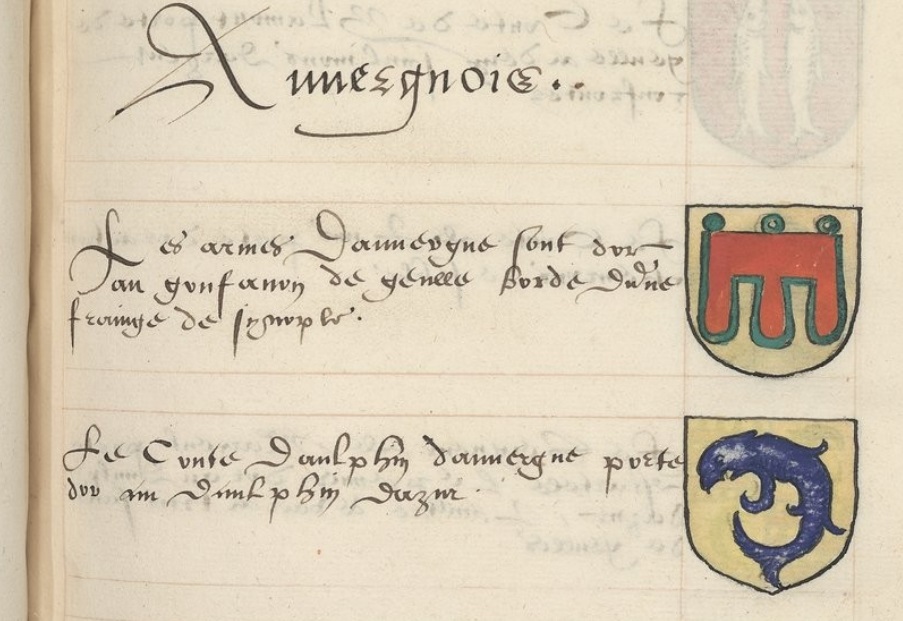 Auuergnois..
Les armes Dauuergne sont dor
au gonfanon de geulle borde dune
frainge de synople.
Le Conte Daulphin dauuergne porte
dor au Daulphin dazur.